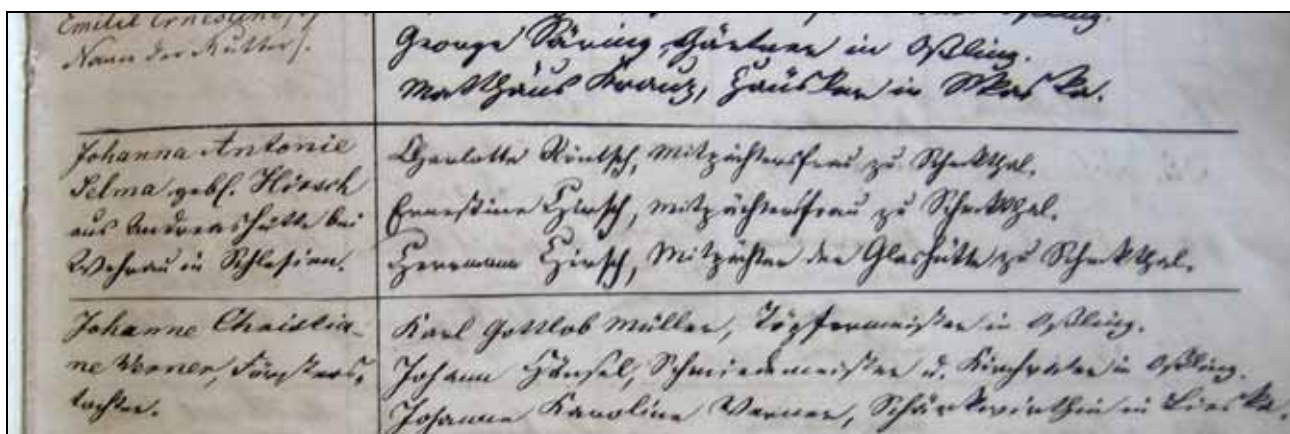 Emilie Ernestine
Name der Mutter).
George Säring, Gärtner in Oßling.
Matthäus Kranz, Häusler in Skaska.
Johanna Antonie
Selma gebh. Hirsch
aus Andreashütte bei
Wehrau in Schlesien.
Charlotte Röntsch, Mitpächtersfrau zu Scheckthal.
Ernestine Hirsch, Mitpächtersfrau zu Scheckthal.
Herrmann Hirsch, Mitpächter der Glashütte zu Scheckthal.
Johanne Christia-
ne Werner, Försters-
tochter.
Karl Gottlob Müller, Töpfermeister in Oßling.
Johann Hänsel, Schmiedemeister u. Kirchvater in Oßling.
Johanne Karoline Werner, Schänkwirthin in Lieske.